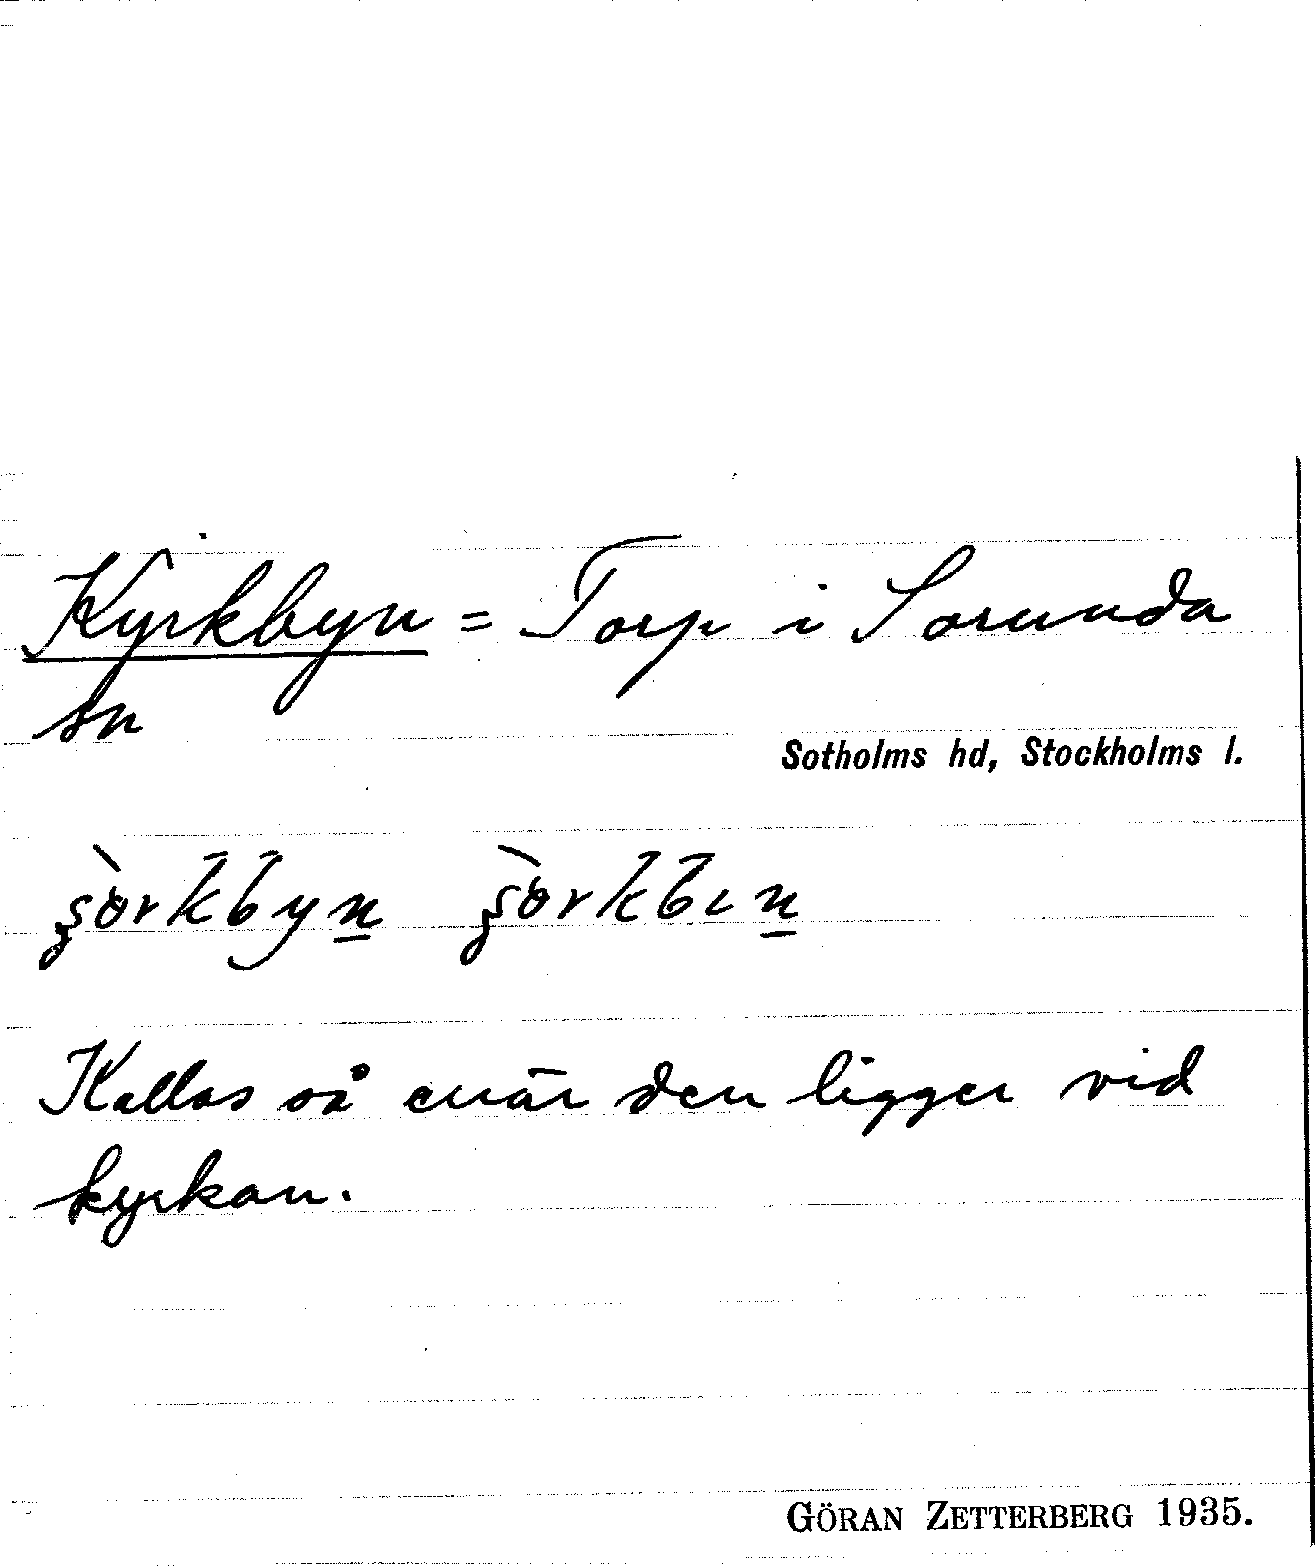 Kyrkbyn = Torp i Sorunda
sn
Sotholms hd, Stockholms l.
Kallas så enär den ligger vid
kyrkan.
GÖRAN ZETTERBERG 1935.